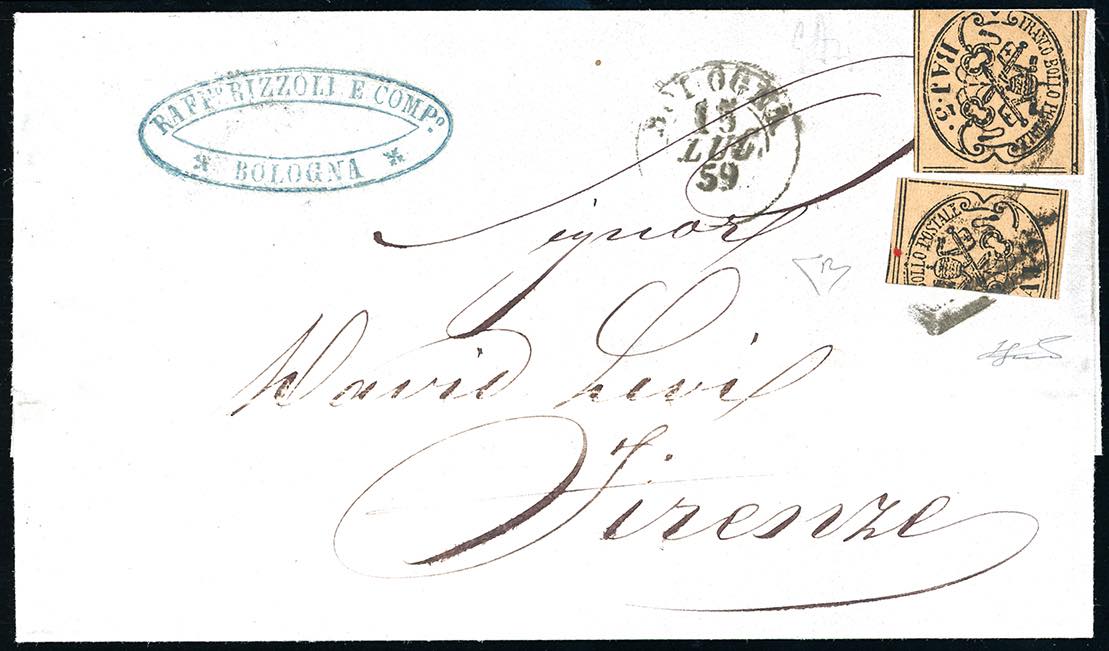 RAFF.º RIZZOLI E COMP.º
BOLOGNA
BOLOGNA
15
LUG.
59
FRANCO BOLLO POSTALE
BAJ. 2.
BOLLO POSTALE
Signor
David Levi
Firenze